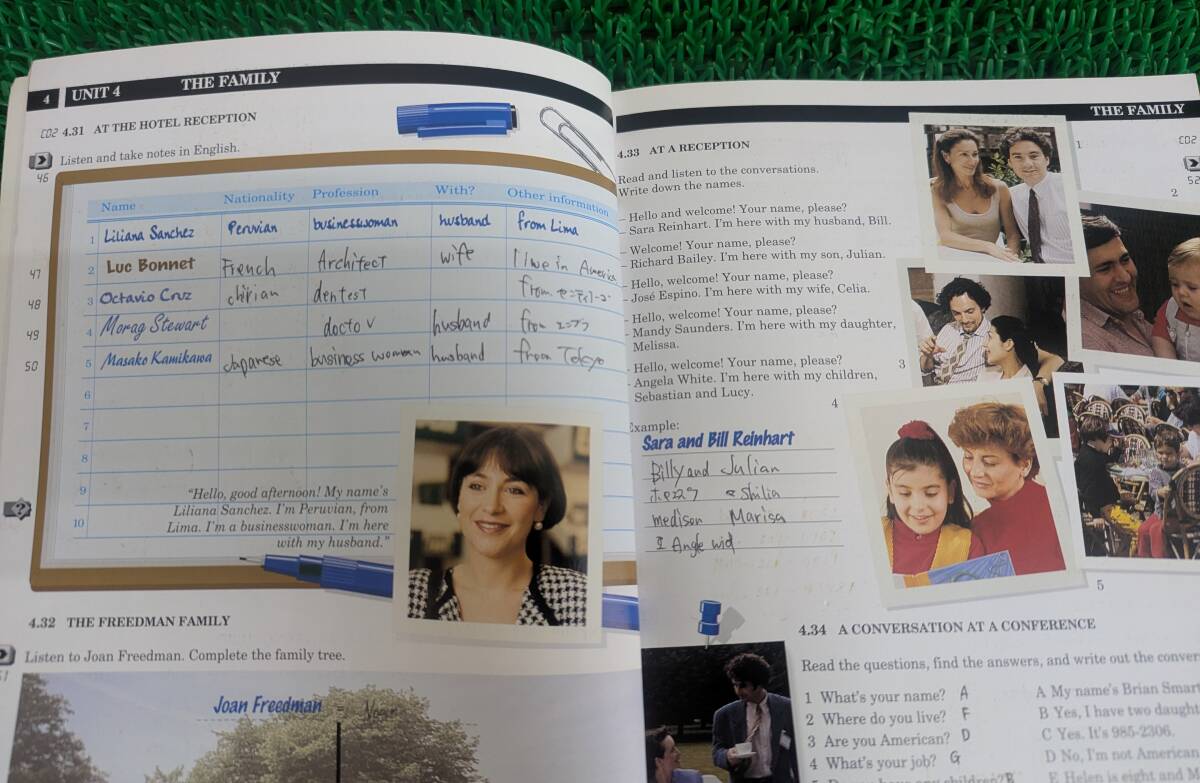 4 UNIT 4 THE FAMILY
CD2 4.31 AT THE HOTEL RECEPTION
Listen and take notes in English.
46
Name Nationality Profession With? Other information
1 Liliana Sanchez Peruvian businesswoman husband from Lima
47 2 Luc Bonnet French Architect wife I live in America
48 3 Octavio Cruz chirian dentest from
49 4 Morag Stewart doctov husband from
50 5 Masako Kamikawa Japanese business woman husband from Tokyo
6
7
8
9
10
"Hello, good afternoon! My name's
Liliana Sanchez. I'm Peruvian, from
Lima. I'm a businesswoman. I'm here
with my husband."
4.32 THE FREEDMAN FAMILY
Listen to Joan Freedman. Complete the family tree.
51
Joan Freedman
THE FAMILY
4.33 AT A RECEPTION
Read and listen to the conversations.
Write down the names.
- Hello and welcome! Your name, please?
- Sara Reinhart. I'm here with my husband, Bill.
- Welcome! Your name, please?
- Richard Bailey. I'm here with my son, Julian.
- Hello, welcome! Your name, please?
- José Espino. I'm here with my wife, Celia.
- Hello, welcome! Your name, please?
- Mandy Saunders. I'm here with my daughter,
Melissa.
- Hello, welcome! Your name, please?
- Angela White. I'm here with my children,
Sebastian and Lucy.
Example:
Sara and Bill Reinhart
Billy and Julian
ホセスク & Shilia
medison Marisa
Angle wid
1
CD2
52
2
3
4
5
4.34 A CONVERSATION AT A CONFERENCE
Read the questions, find the answers, and write out the conver
1 What's your name? A
2 Where do you live? F
3 Are you American? D
4 What's your job? G
A My name's Brian Smart
B Yes, I have two daught
C Yes. It's 985-2306.
D No, I'm not American
E Helen is eight and M